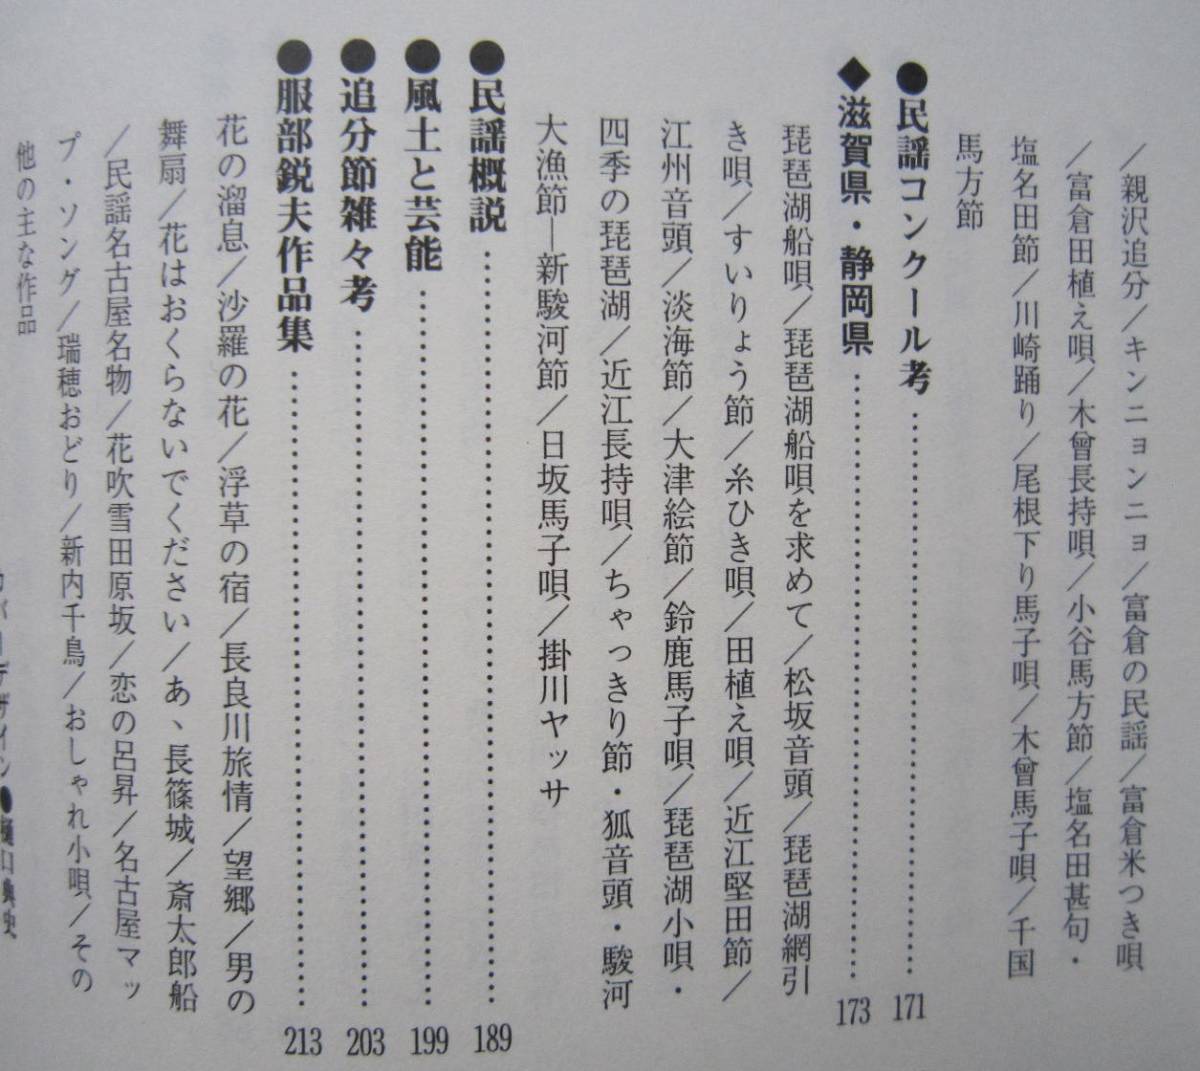 ／親沢追分／キンニョンニョ／富倉の民謡／富倉米つき唄
／富倉田植え唄／木曾長持唄／小谷馬方節／塩名田甚句・
塩名田節／川崎踊り／尾根下り馬子唄／木曾馬子唄／千国
馬方節
●民謡コンクール考 171
◆滋賀県・静岡県 173
琵琶湖船唄／琵琶湖船唄を求めて／松坂音頭／琵琶湖網引
き唄／すいりょう節／糸ひき唄／田植え唄／近江堅田節／
江州音頭／淡海節／大津絵節／鈴鹿馬子唄／琵琶湖小唄・
四季の琵琶湖／近江長持唄／ちゃっきり節・狐音頭・駿河
大漁節―新駿河節／日坂馬子唄／掛川ヤッサ
●民謡概説 189
●風土と芸能 199
●追分節雑々考 203
●服部鋭夫作品集 213
花の溜息／沙羅の花／浮草の宿／長良川旅情／望郷／男の
舞扇／花はおくらないでください／あゝ長篠城／斎太郎船
／民謡名古屋名物／花吹雪田原坂／恋の呂昇／名古屋マッ
プ・ソング／瑞穂おどり／新内千鳥／おしゃれ小唄／その
他の主な作品
カバーデザイン●樋口典史